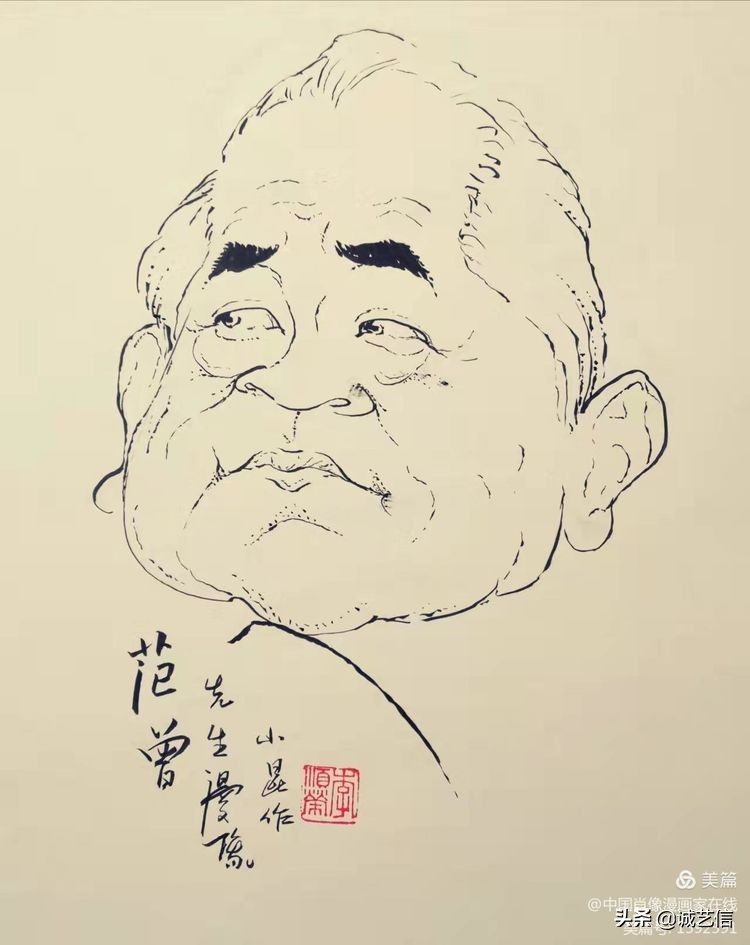 范曾
先生漫像
小昆作
李順榮
美篇
@中国肖像漫画家在线
美篇号:
头条 @诚艺信